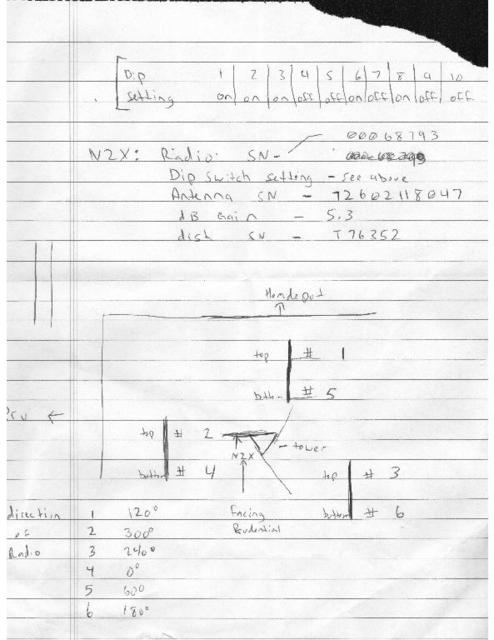 Dip 1 2 3 4 5 6 7 8 9 10
setting on on on off off on off on off off
00068793
N2X: Radio SN -
Dip Switch setting - see above
Antenna SN - 72602118047
dB Gain - 5.3
dish SN - T76352
Homdepot
top # 1
bottom # 5
top # 2
tower
N2X
bottom # 4
top # 3
bottom # 6
Facing
Prudential
direction 1 120°
of 2 300°
Radio 3 240°
4 0°
5 60°
6 180°